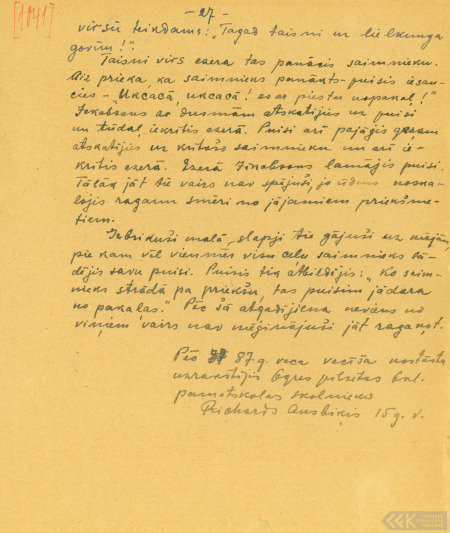 [1041]
- 27 -
virsū teikdams: „Tagad taisni uz lielkunga
govīm!".
Taisni virs ezera tas panācis saimnieku.
Aiz prieka, ka saimnieks panākts - puisis iesau-
cies - Ukcacā, ukcacā! es ar piestu nopakaļ!"
Jēkabsons ar dusmām atskatījies uz puisi
un tūdaļ iekritis ezerā. Puisi arī
atskatījies uz krītošo saimnieku un arī ie-
kritis ezerā. Ezerā lamājis puisi.
Tālāk jāt tie vairs nav spējuši, jo ūdens noska-
lojis raganu smēri no jājamiem priekšme-
tiem.
Izbrīduši malā, slapji tie gājuši uz mājām,
pie kam vēl vienmēr visu ceļu saimnieks bā-
dējis savu puisi. Puisis tik atbildējis: „Ko saim-
nieks strādā pa priekšu, tas puisim jādara
no pakaļas." Pēc šā atgadījiena neviens no
viņiem vairs nav mēģinājuši jāt raganot.
Pēc 87 g. veca vecīša nostāsta
uzrakstījis Ogres pilsētas
pamatskolas skolnieks
Richards Ansbiķis 15 g. v.